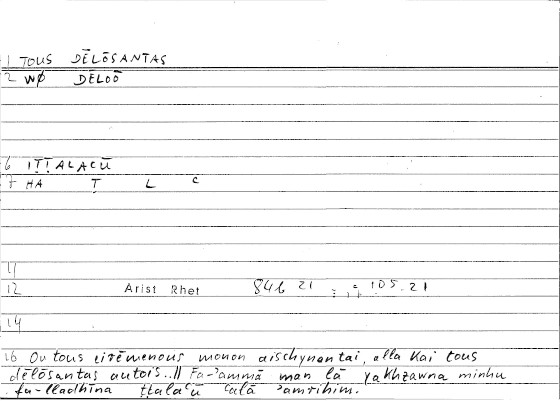 1 TOUS DĒLŌSANTAS
2 WØ DĒLOŌ
6 IṬṬALAʿŪ
7 HA Ṭ L ʿ
11
12 Arist Rhet 84b 21 : ; 105.21
14
16 Ou tous eirēmenous monon aischynontai, alla kai tous
dēlōsantas autois..// Fa-ʾammā man lā yakhzawna minhu
fa-lladhīna ṭṭalaʿū ʿalā ʾamrihim.